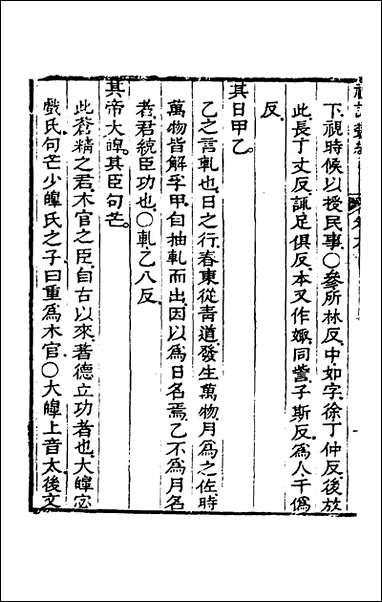 下視時候以授民事〇參所林反中如字徐丁仲反後放
此長丁丈反諏足俱反本又作娵同訾子斯反爲人于僞
反
其日甲乙
乙之言軋也日之行春東從青道發生萬物月爲之佐時
萬物皆解孚甲自抽軋而出因以爲日名焉乙不爲月名
者君統臣功也〇軋乙八反
其帝大皥其臣句芒
此蒼精之君木官之臣自古以來著德立功者也大皥宓
戲氏句芒少皥氏之子曰重爲木官〇大皥上音太後文